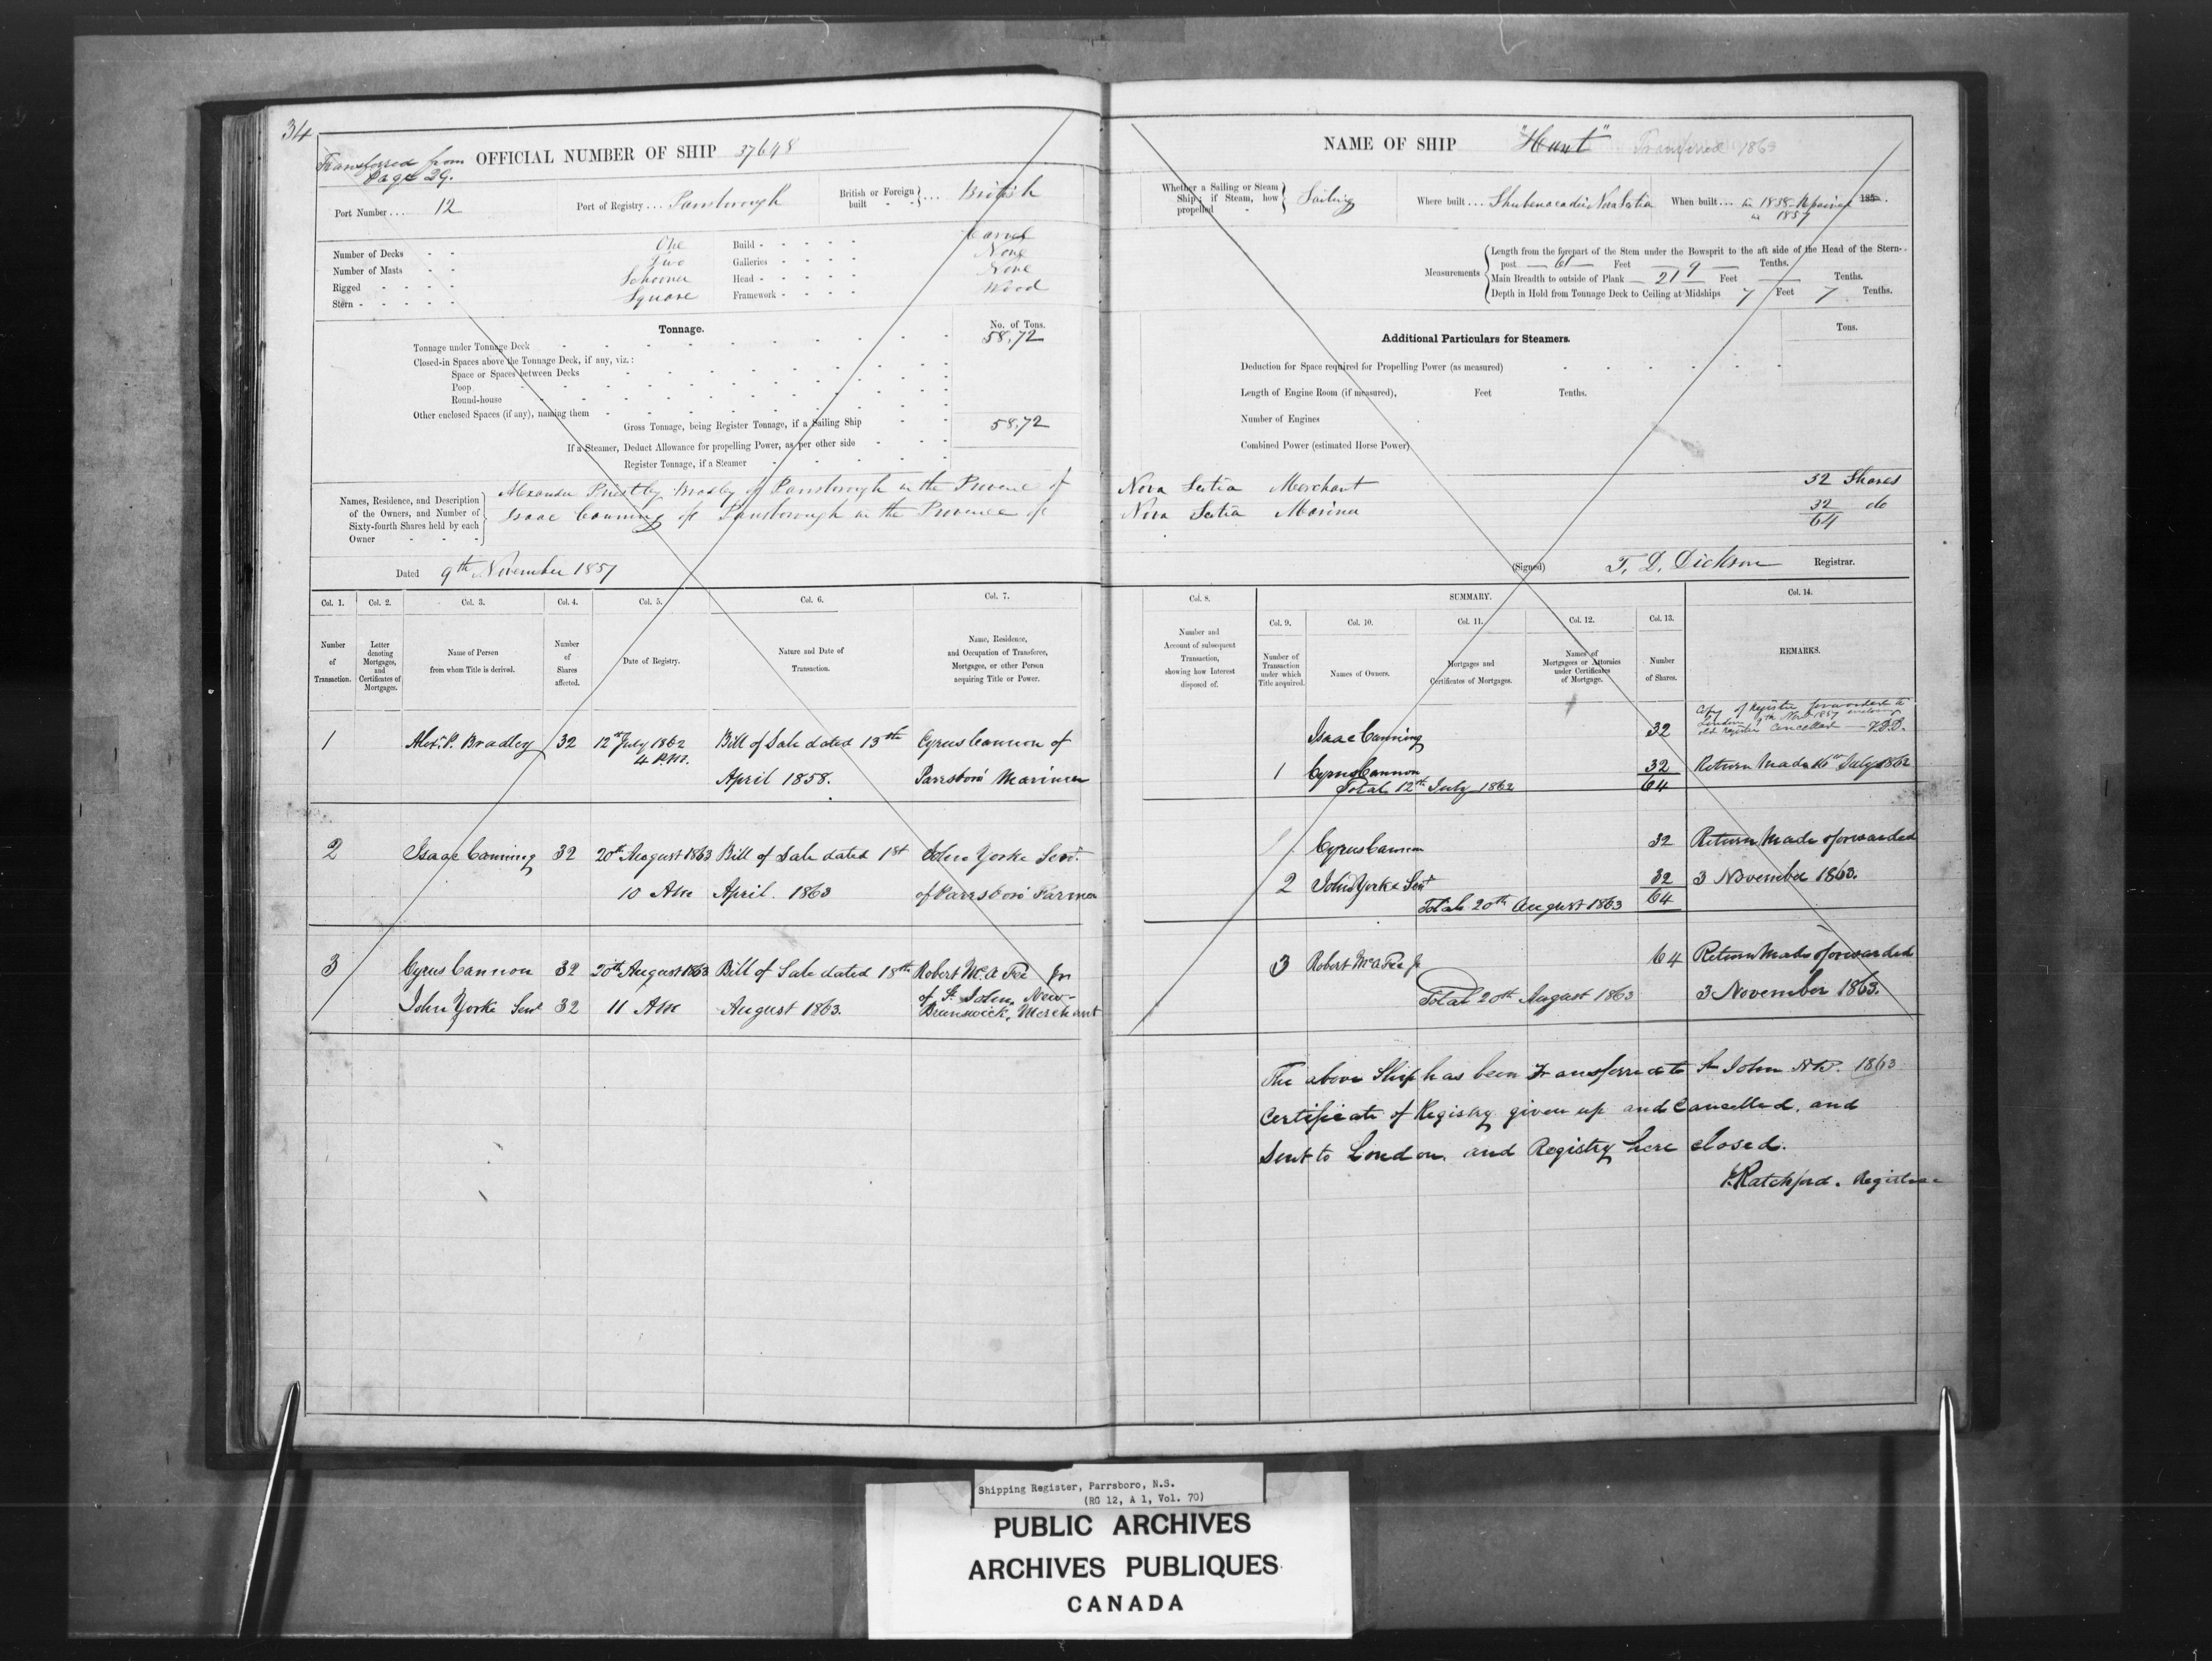 34
Transferred from
Page 29.
OFFICIAL NUMBER OF SHIP 37648
Port Number ... 12
Port of Registry ... Parrsborough
British or Foreign built ... British
Number of Decks One
Number of Masts Two
Rigged Schooner
Stern Square
Build Carvel
Galleries None
Head None
Framework Wood
Tonnage.
No. of Tons.
Tonnage under Tonnage Deck 58,72
Closed-in Spaces above the Tonnage Deck, if any, viz.:
Space or Spaces between Decks
Poop
Round-house
Other enclosed Spaces (if any), naming them
Gross Tonnage, being Register Tonnage, if a Sailing Ship 58,72
If a Steamer, Deduct Allowance for propelling Power, as per other side
Register Tonnage, if a Steamer
Names, Residence, and Description
of the Owners, and Number of
Sixty-fourth Shares held by each
Owner
Alexander Priestley Bradley of Parrsborough in the Province of
Isaac Canning of Parrsborough in the Province of
Dated 9th November 1857
NAME OF SHIP "Hunt" Transferred 1863
Whether a Sailing or Steam
Ship; if Steam, how
propelled
Sailing
Where built ... Shubenacadie Nova Scotia
When built ... in 1838 Repaired 185
in 1857
Measurements
Length from the forepart of the Stem under the Bowsprit to the aft side of the Head of the Stern-
post 61 Feet 9 Tenths.
Main Breadth to outside of Plank 21 Feet Tenths.
Depth in Hold from Tonnage Deck to Ceiling at Midships 7 Feet 7 Tenths.
Additional Particulars for Steamers.
Tons.
Deduction for Space required for Propelling Power (as measured)
Length of Engine Room (if measured), Feet Tenths.
Number of Engines
Combined Power (estimated Horse Power)
Nova Scotia Merchant 32 Shares
Nova Scotia Mariner 32 do
64
(Signed) T. D. Dickson Registrar.
Col. 1. Col. 2. Col. 3. Col. 4. Col. 5. Col. 6. Col. 7.
Number of Transaction.
Letter denoting Mortgages, and Certificates of Mortgages.
Name of Person from whom Title is derived.
Number of Shares affected.
Date of Registry.
Nature and Date of Transaction.
Name, Residence, and Occupation of Transferee, Mortgagee, or other Person acquiring Title or Power.
1 Alexr. P. Bradley 32 12th July 1862 Bill of Sale dated 13th Cyrus Cannon of
4 P.M. April 1858. Parrsboro Mariner
2 Isaac Canning 32 20th August 1863 Bill of Sale dated 1st John Yorke Senr.
10 AM April 1863 of Parrsboro Farmer
3 Cyrus Cannon 32 20th August 1863 Bill of Sale dated 18th Robert McAFee Jr
John Yorke Senr 32 11 AM August 1863. of St. John, New-
Brunswick, Merchant
Col. 8. SUMMARY. Col. 14.
Col. 9. Col. 10. Col. 11. Col. 12. Col. 13.
Number and Account of subsequent Transaction, showing how Interest disposed of.
Number of Transaction under which Title acquired.
Names of Owners.
Mortgages and Certificates of Mortgages.
Names of Mortgagees or Attornies under Certificates of Mortgage.
Number of Shares.
REMARKS.
Copy of Register forwarded to
London 9th Novr 1857 enclosing
old Register Cancelled T.D.D.
Isaac Canning 32
1 Cyrus Cannon 32 Return Made 16th July 1862
Total 12th July 1862 64
1 Cyrus Cannon 32 Return Made & forwarded
2 John Yorke Senr 32 3 November 1863.
Total 20th August 1863 64
3 Robert McAFee Jr 64 Return Made & forwarded
Total 20th August 1863 3 November 1863.
The above Ship has been Transferred to St John NB. 1863
Certificate of Registry given up and Cancelled, and
Sent to London, and Registry here closed.
J. Ratchford. Registrar
Shipping Register, Parrsboro, N.S.
(RG 12, A 1, Vol. 70)
PUBLIC ARCHIVES
ARCHIVES PUBLIQUES
CANADA